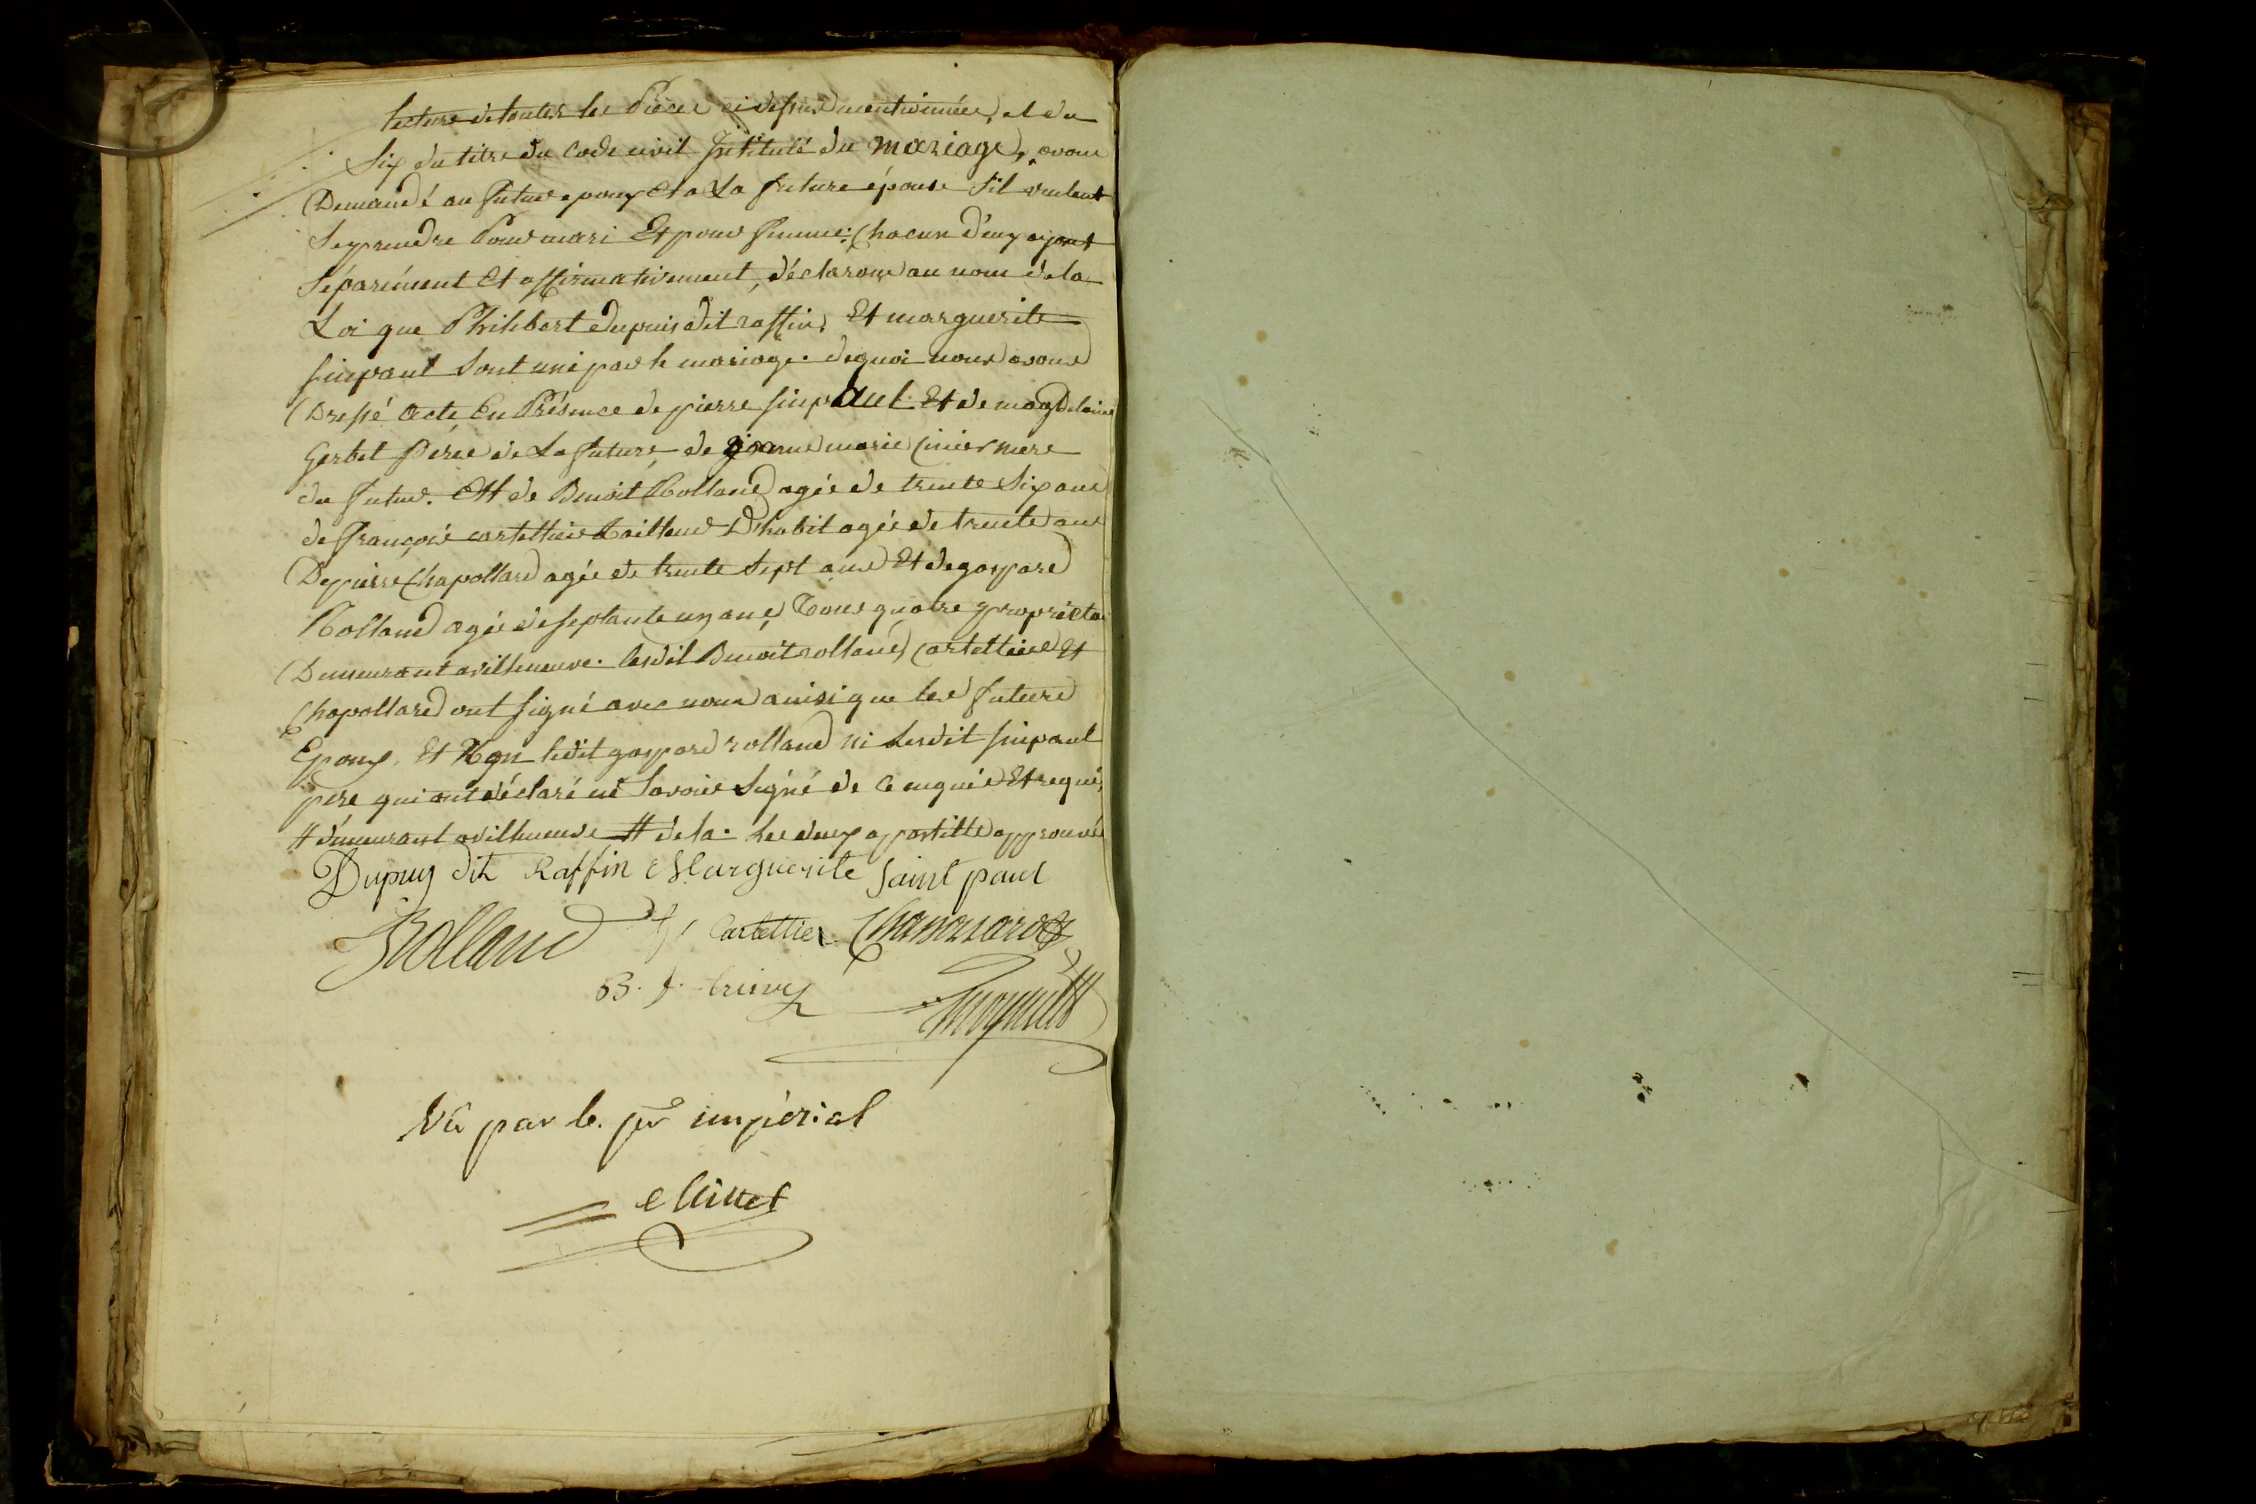 lecture de toutes les Pieces ci dessus mentionnées, et du
Six du titre du Code civil Intitulé du mariage, avons
Demandé au futur epoux Et a La future épouse S'il veulent
Se prendre Pour mari Et pour femme. Chacun d'eux ayant
Séparément Et affirmativement, déclarons au nom de la
Loi que Philibert dupuis dit raffin, Et marguerite
sinpaul Sont uni par le mariage. de quoi nous avons
Dressé acte, En Présence de pierre sinpaul Et de magdelaine
Gerbet Pére de La future, de jeanne marie Cinier mere
du futur. Et de Benoit Rolland agée de trente Six ans
de François cartellier Tailleur D'habit agée de trente ans
De pierre Chapollard agée de trente Sept ans Et de gaspard
Rolland agée de septante un ans, Tous quatre proprieta
Demeurant a villeneuve. lesdit Benoit rolland, Cartellier Et
Chapollard ont signé avec nous ainsi que les future
Epoux. Et Non ledit gaspard rolland ni Lesdit sinpaul
pere qui ont déclaré ne Savoir Signé de ce enquie Et requi,
# demeurant a villeneuve # de la. Les deux apostille approuvée
Dupuy dit Raffin Marguerite Saint paul
Rolland Cartellier Chapollard
Vû par le. pr impérial